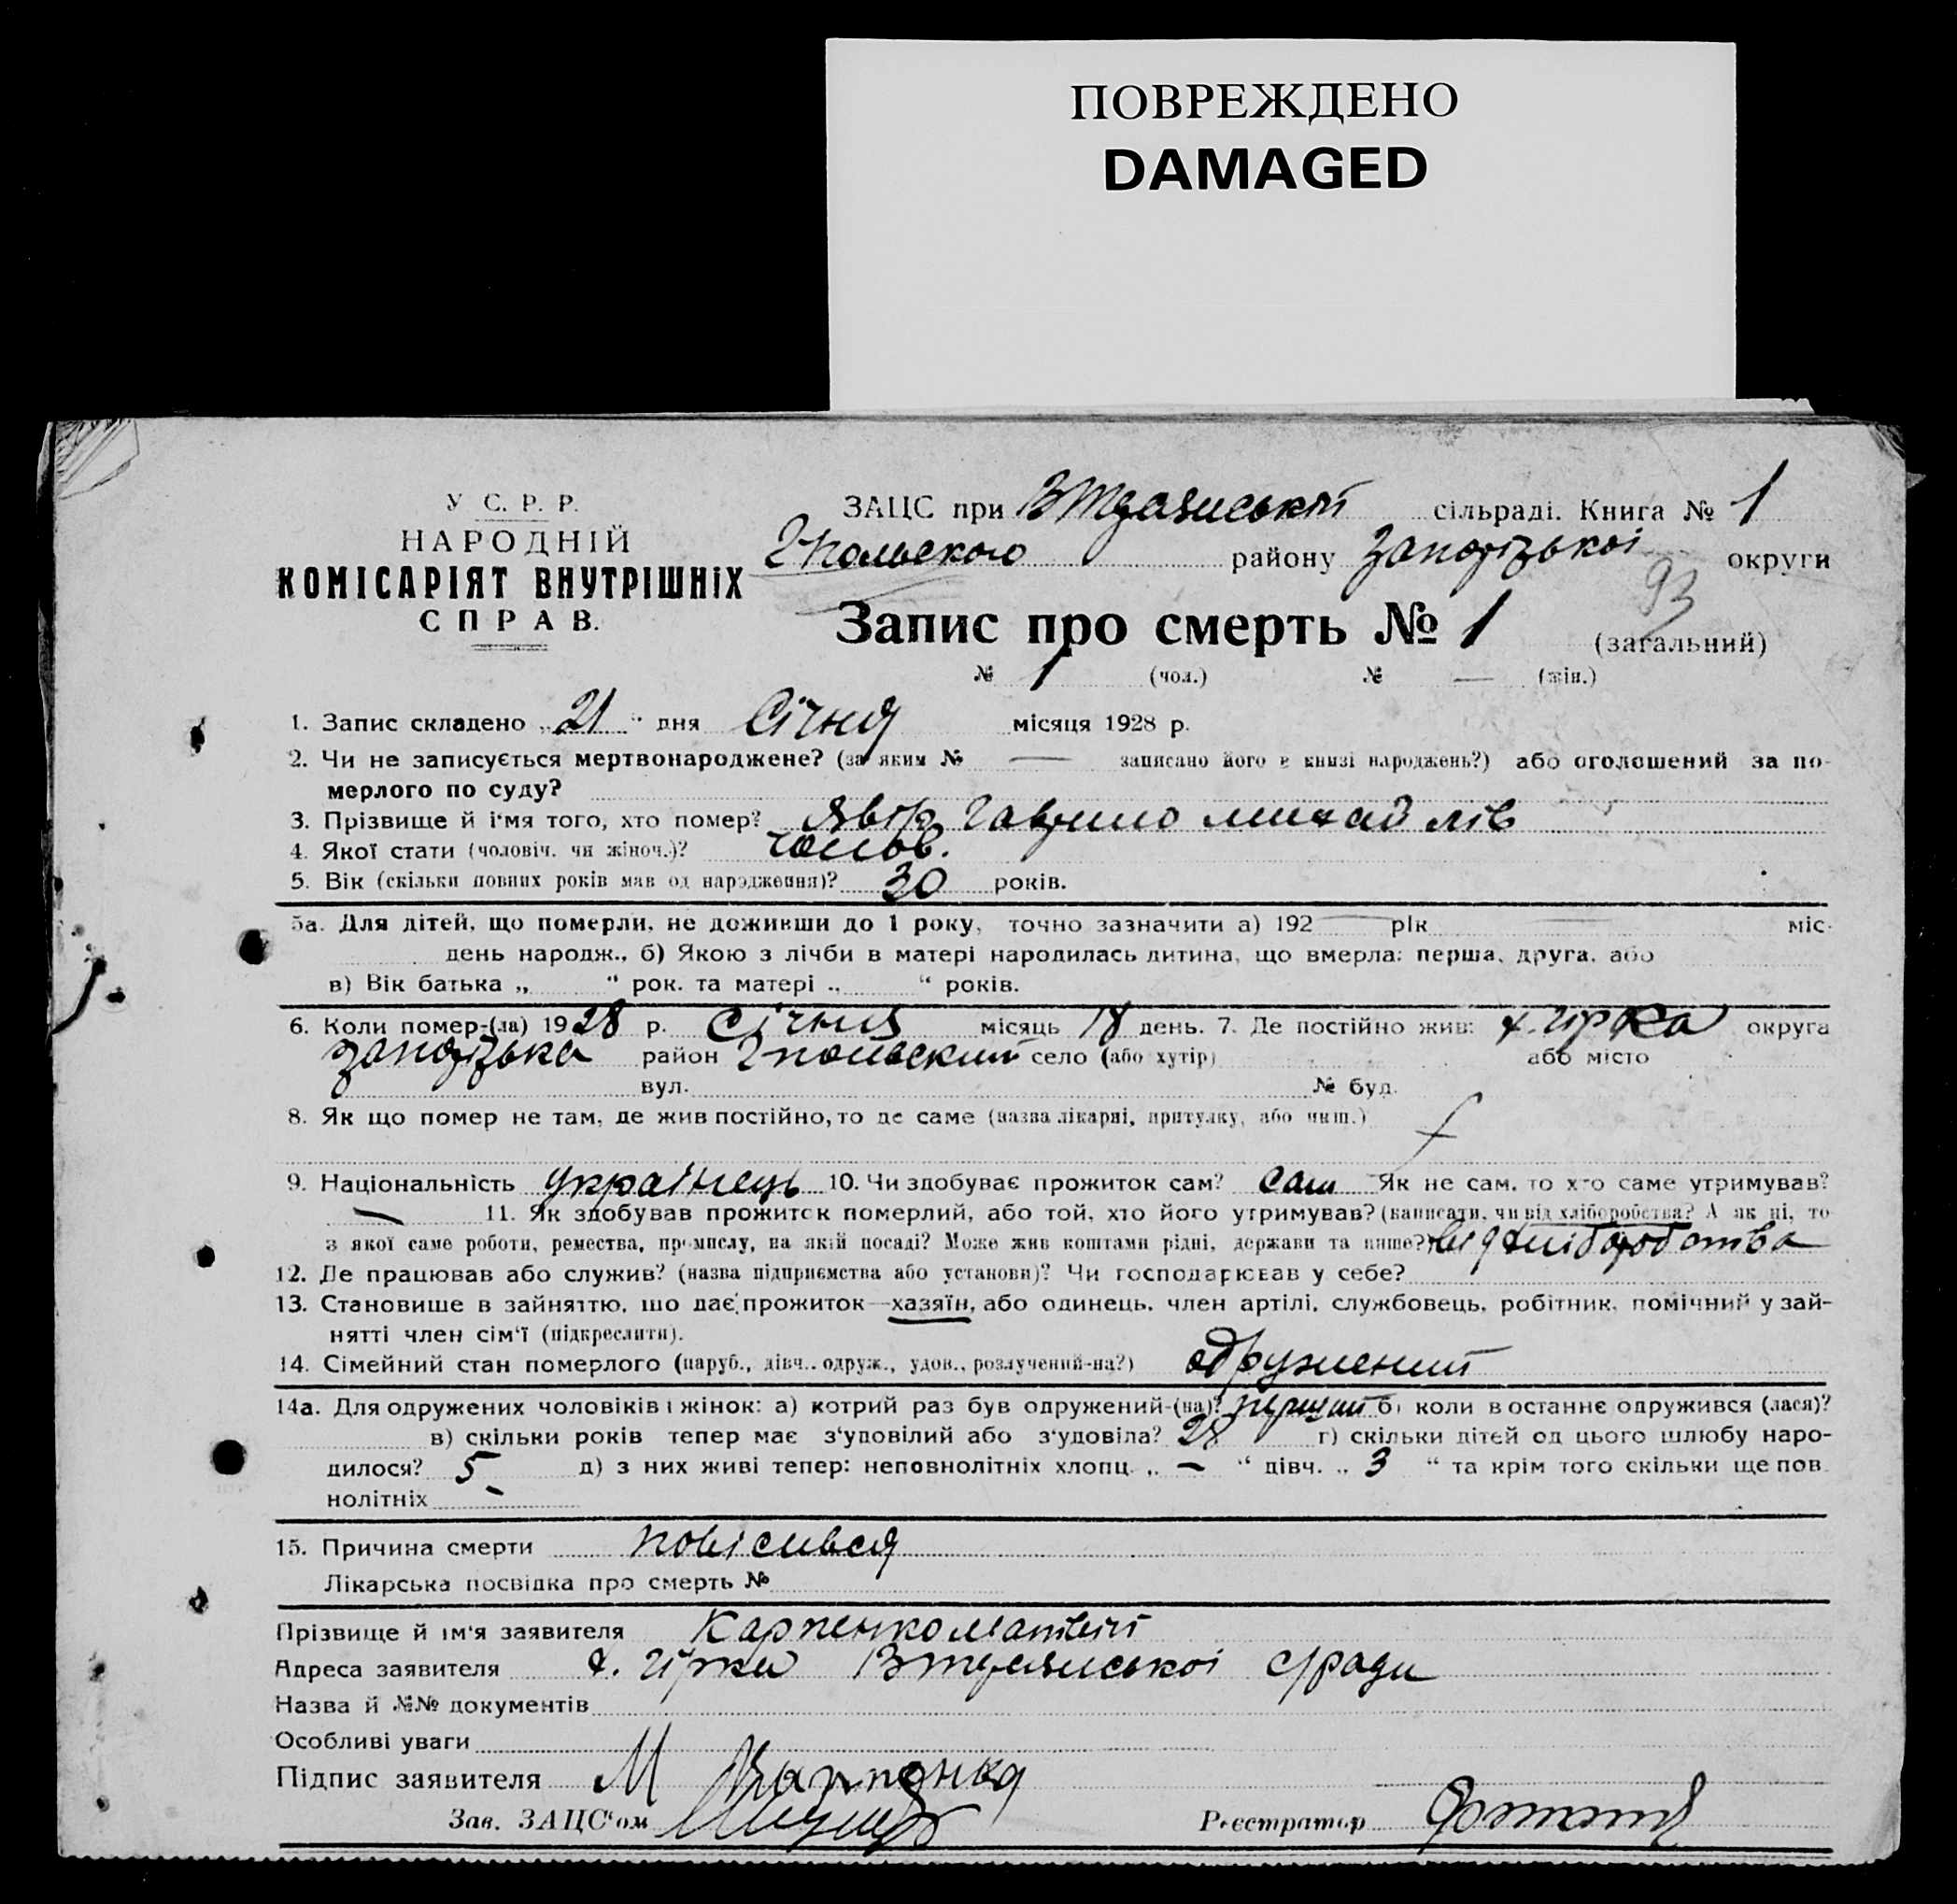 ПОВРЕЖДЕНО
DAMAGED
У С. Р. Р.
НАРОДНІЙ
КОМІСАРІЯТ ВНУТРІШНІХ
СПРАВ.
ЗАЦС при сільраді. Книга № 1
району Запорізької округи
93
Запис про смерть № 1 (загальний)
№ 1 (чол.) № — (жін.)
1. Запис складено „ 21 “ дня Січня місяця 1928 р.
2. Чи не записується мертвонароджене? (за яким № — записано його в книзі народжень?) або оголошений за по-
мерлого по суду?
3. Прізвище й ім'я того, хто помер? Явір Гаврило
4. Якої стати (чоловіч. чи жіноч.)? чолов.
5. Вік (скільки повних років мав од народження)? 30 років.
5а. Для дітей, що померли, не доживши до 1 року, точно зазначити а) 192 — рік — міс.
день народж., б) Якою з лічби в матері народилась дитина, що вмерла: перша, друга, або
в) Вік батька „ “ рок. та матері „ “ років.
6. Коли помер-(ла) 1928 р. Січня місяць 18 день. 7. Де постійно жив: х. Гірка округа
Запорізька район село (або хутір) або місто
вул. № буд.
8. Як що помер не там, де жив постійно, то де саме (назва лікарні, притулку, або инш.)
9. Національність українець 10. Чи здобуває прожиток сам? сам Як не сам, то хто саме утримував?
— 11. Як здобував прожиток померлий, або той, хто його утримував? (написати, чи від хліборобства? А як ні, то
з якої саме роботи, ремества, промислу, на якій посаді? Може жив коштами рідні, держави та инше?) від хліборобства
12. Де працював або служив? (назва підприємства або установи)? Чи господарював у себе?
13. Становище в зайняттю, що дає прожиток—хазяїн, або одинець, член артілі, службовець, робітник, помічний у зай-
нятті член сім'ї (підкреслити).
14. Сімейний стан померлого (паруб., дівч., одруж., удов., розлучений-на?) одружений
14а. Для одружених чоловіків і жінок: а) котрий раз був одружений-(на)? перший б) коли в останнє одружився (лася)?
в) скільки років тепер має з'удовілий або з'удовіла? 28 г) скільки дітей од цього шлюбу наро-
дилося? 5 д) з них живі тепер: неповнолітніх хлопц. „ — “ дівч. „ 3 “ та крім того скільки ще пов
нолітніх —
15. Причина смерти повісився
Лікарська посвідка про смерть №
Прізвище й ім'я заявителя Карпенко Матвій
Адреса заявителя х. Гірка с/ради
Назва й №№ документів
Особливі уваги
Підпис заявителя М Карпенко
Зав. ЗАЦС'ом Реєстратор